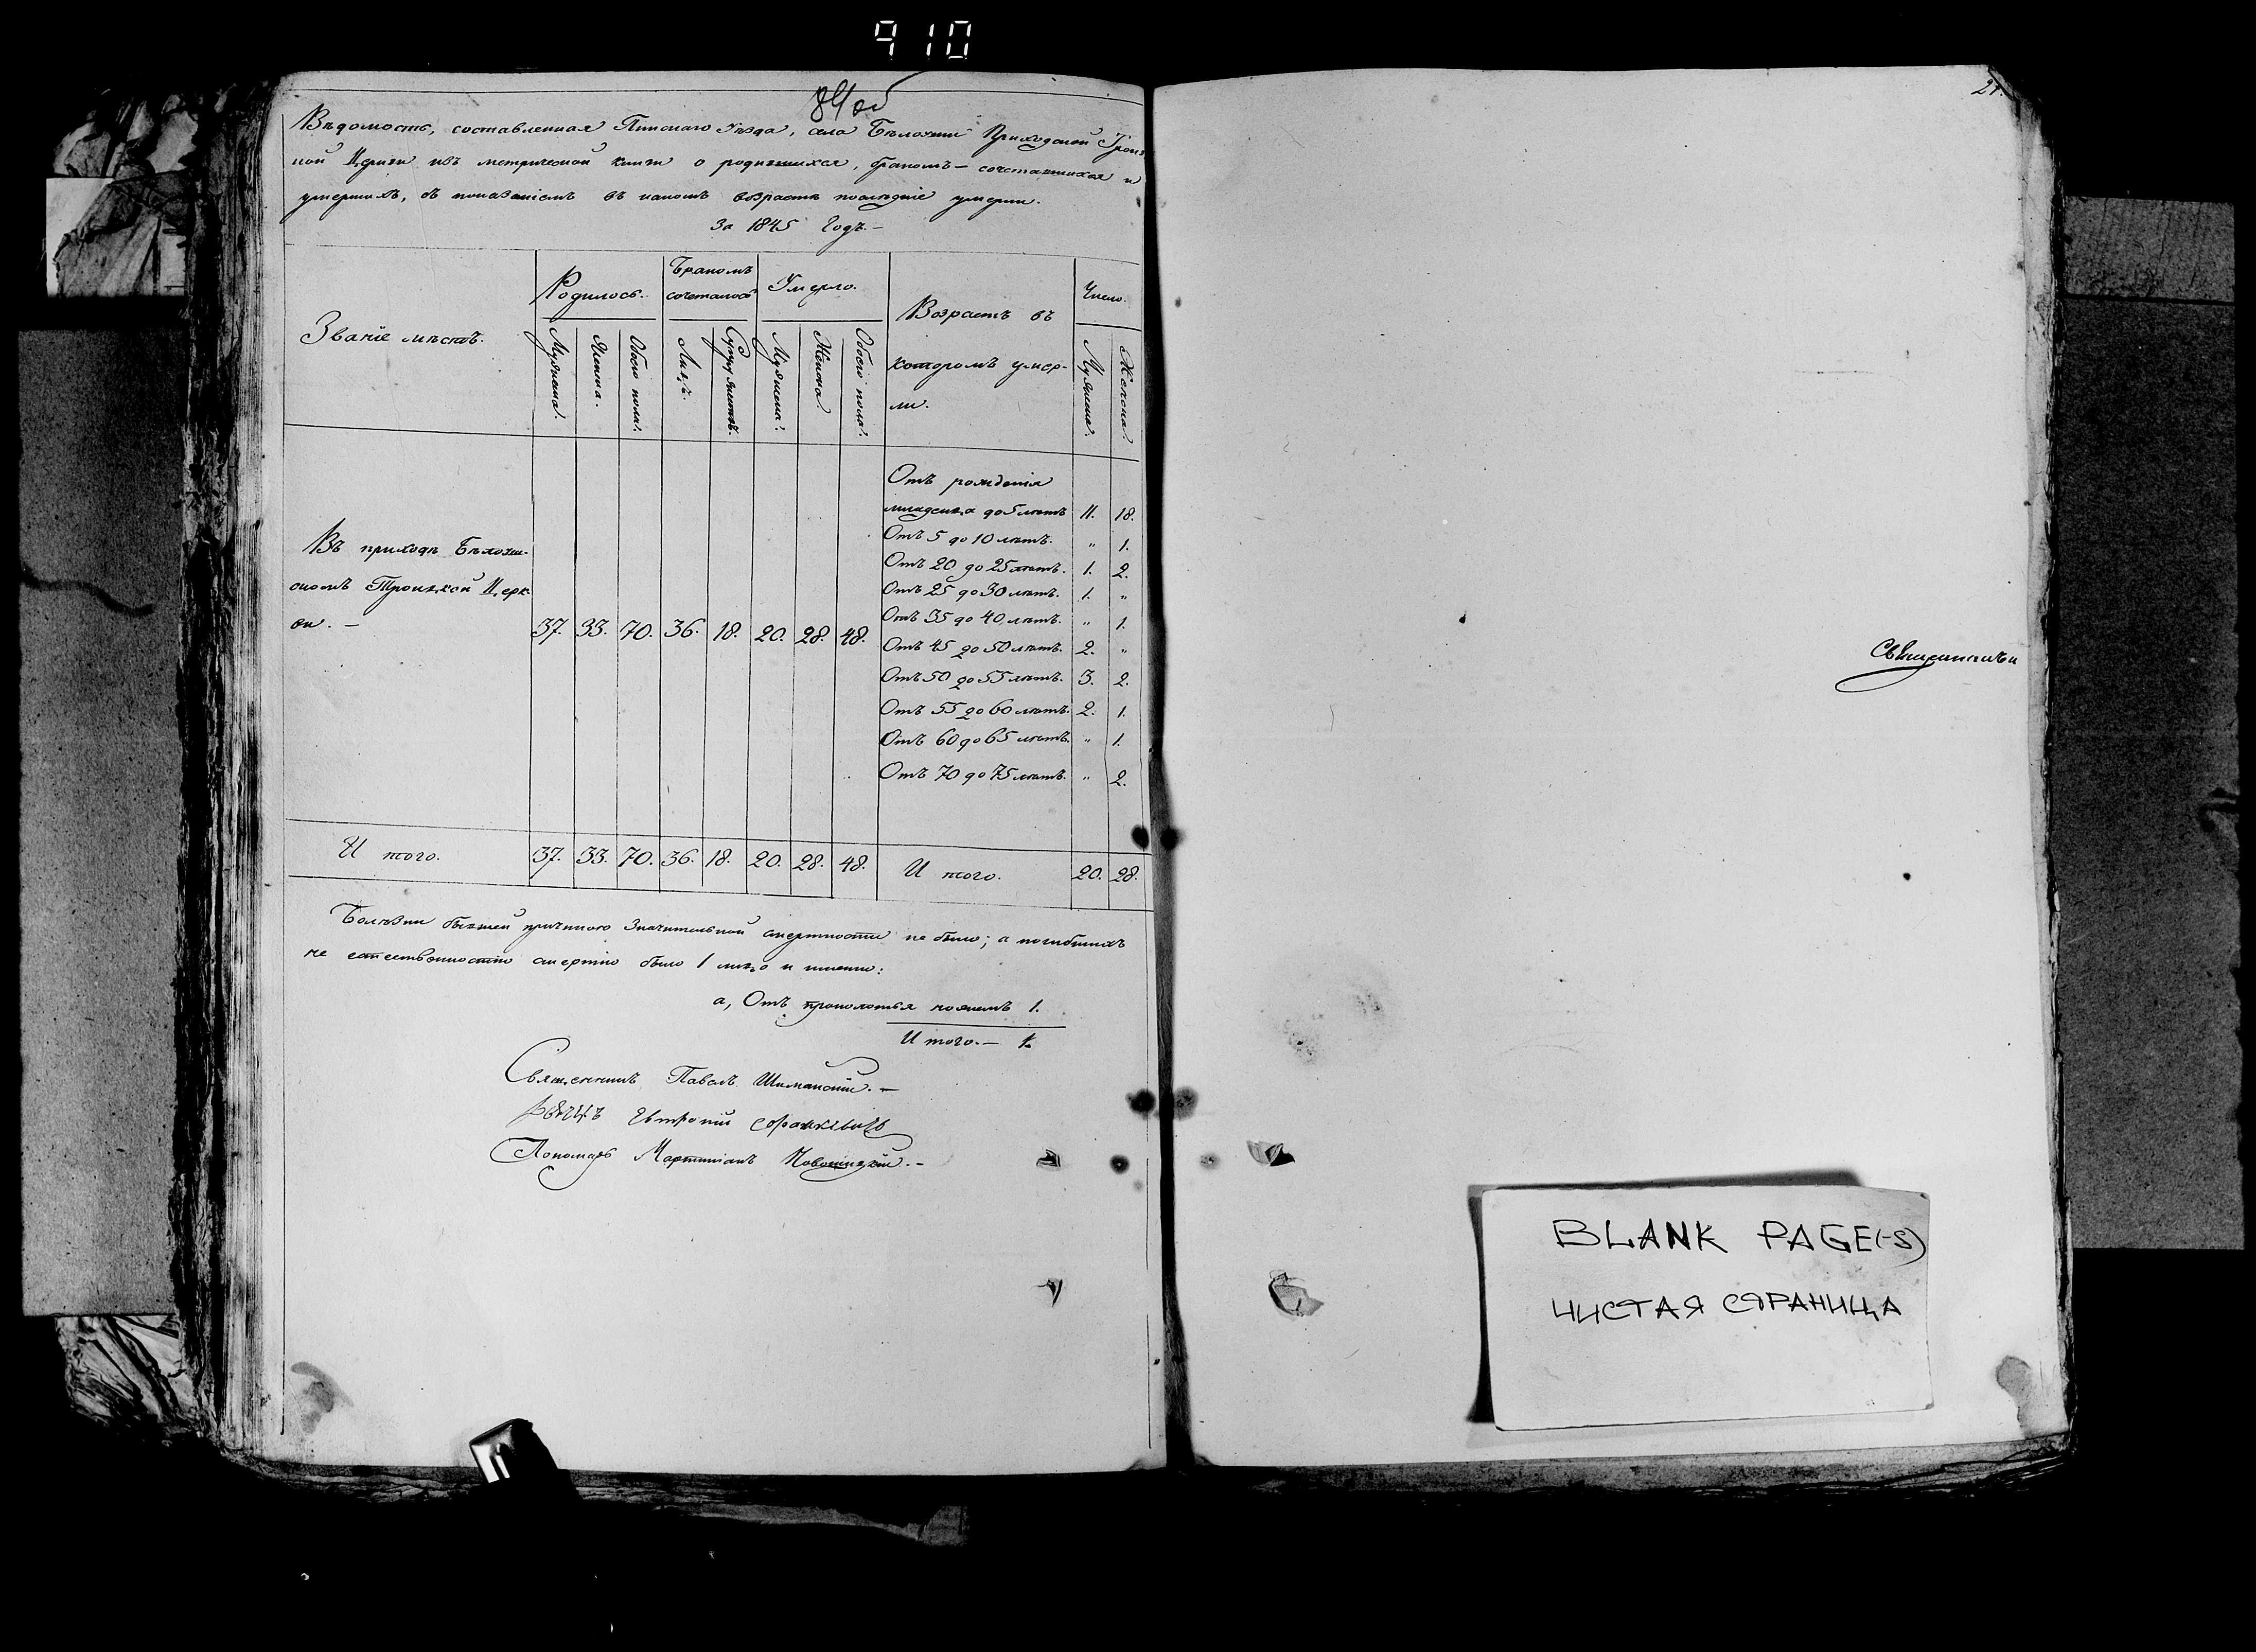 910
84об
Вѣдомость, составленная Пинскаго Уѣзда, села Бѣлозши Приходской Троиц-
кой Церкви изъ метрической книги о родившихся, бракомъ-сочетавшихся и
умершихъ, съ показаніемъ въ какомъ возрастѣ послѣдніе умерли.
За 1845 Годъ.-
Званіе мѣстъ. Родилось. Бракомъ сочеталось Умерло. Возрастъ въ которомъ умер-ли. Число.
Мужеска. Женска. Обоего пола. Лицъ. Супружествъ. Мужеска. Женска. Обоего пола. Мужеска. Женска.
Отъ рожденія
младенца до 5 лѣтъ 11. 18.
Отъ 5 до 10 лѣтъ. „ 1.
Отъ 20 до 25 лѣтъ. 1. 2.
Отъ 25 до 30 лѣтъ. 1. „
Отъ 35 до 40 лѣтъ. „ 1.
Отъ 45 до 50 лѣтъ. 2. „
Отъ 50 до 55 лѣтъ. 3. 2.
Отъ 55 до 60 лѣтъ. 2. 1.
Отъ 60 до 65 лѣтъ. „ 1.
Отъ 70 до 75 лѣтъ. „ 2.
Въ приходѣ
скомъ Троицкой Церк-
ви. - 37. 33. 70. 36. 18. 20. 28. 48.
И того. 37. 33. 70. 36. 18. 20. 28. 48. И того. 20. 28.
Болѣзни бывшей причиною значительной смертности не было; а погибшихъ
не естественностію смертію было 1 лицо и именно:
а, Отъ проколотья ножемъ 1.
И того.- 1.
Священникъ Павелъ Шиманскій.-
Евтропій
Пономарь Мартиніанъ Новошицкій.-
BLANK PAGE(-S)
ЧИСТАЯ СТРАНИЦА